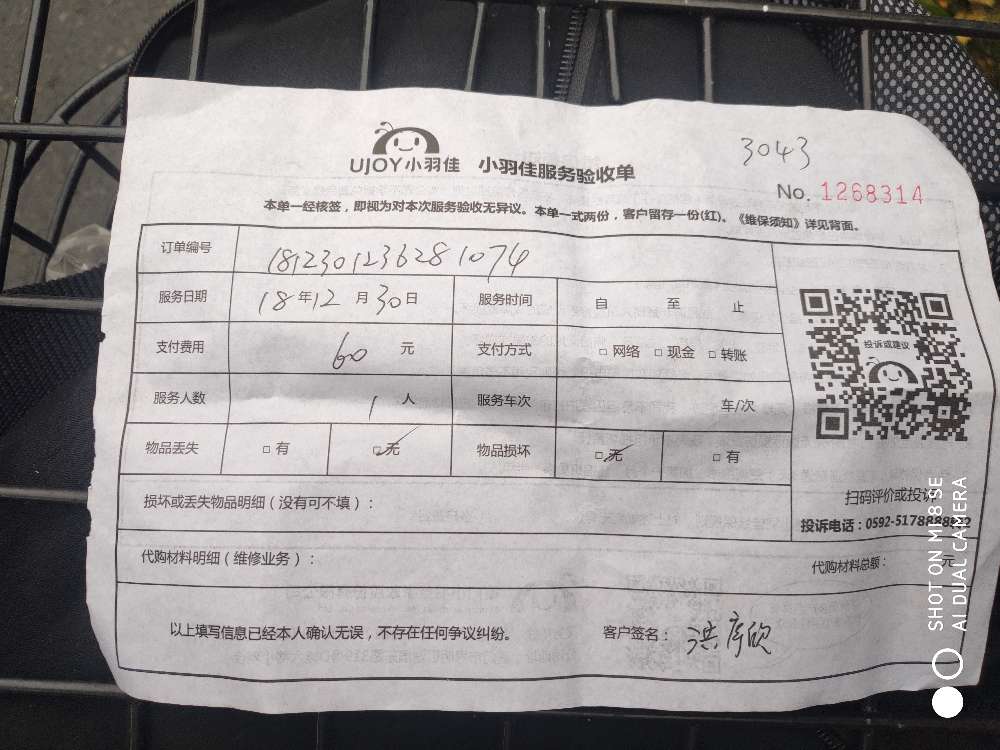 3043
UJOY小羽佳 小羽佳服务验收单
No. 1268314
本单一经核签，即视为对本次服务验收无异议。本单一式两份，客户留存一份(红)。《维保须知》详见背面。
订单编号 181230123628 1074
服务日期 18年12月30日 服务时间 自 至 止
投诉或建议
支付费用 60元 支付方式 □网络 □现金 □转账
服务人数 1人 服务车次 车/次
物品丢失 □有 □无 物品损坏 □无 □有
扫码评价或投诉
损坏或丢失物品明细（没有可不填）：
投诉电话：0592-5178888
代购材料明细（维修业务）： 代购材料总额： 元
以上填写信息已经本人确认无误，不存在任何争议纠纷。 客户签名： 洪彦欣
SHOT ON MI 8 SE
AI DUAL CAMERA